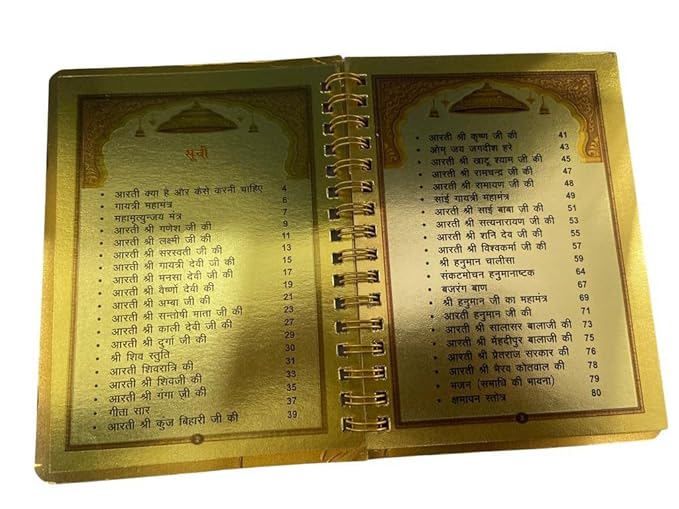 सूची
• आरती क्या है और कैसे करनी चाहिए 4
• गायत्री महामंत्र 6
• महामृत्युन्जय मंत्र 7
• आरती श्री गणेश जी की 9
• आरती श्री लक्ष्मी जी की 11
• आरती श्री सरस्वती जी की 13
• आरती श्री गायत्री देवी जी की 15
• आरती श्री मनसा देवी जी की 17
• आरती श्री वैष्णों देवी की 19
• आरती श्री अम्बा जी की 21
• आरती श्री सन्तोषी माता जी की 23
• आरती श्री काली देवी जी की 27
• आरती श्री दुर्गा जी की 29
• श्री शिव स्तुति 30
• आरती शिवरात्रि की 31
• आरती श्री शिवजी की 33
• आरती श्री गंगा जी की 35
• गीता सार 37
• आरती श्री कुंज बिहारी जी की 39
2
• आरती श्री कृष्ण जी की 41
• ओम् जय जगदीश हरे 43
• आरती श्री खाटू श्याम जी की 45
• आरती श्री रामचन्द्र जी की 47
• आरती श्री रामायण जी की 48
• साई गायत्री महामंत्र 49
• आरती श्री साई बाबा जी की 51
• आरती श्री सत्यनारायण जी की 53
• आरती श्री शनि देव जी की 55
• आरती श्री विश्वकर्मा जी की 57
• श्री हनुमान चालीसा 59
• संकटमोचन हनुमानाष्टक 64
• बजरंग बाण 67
• श्री हनुमान जी का महामंत्र 69
• आरती हनुमान जी की 71
• आरती श्री सालासर बालाजी की 73
• आरती श्री मेंहदीपुर बालाजी की 75
• आरती श्री प्रेतराज सरकार की 76
• आरती श्री भैरव कोतवाल की 78
• भजन (समाधि की भावना) 79
• क्षमायन स्तोत्र 80
3